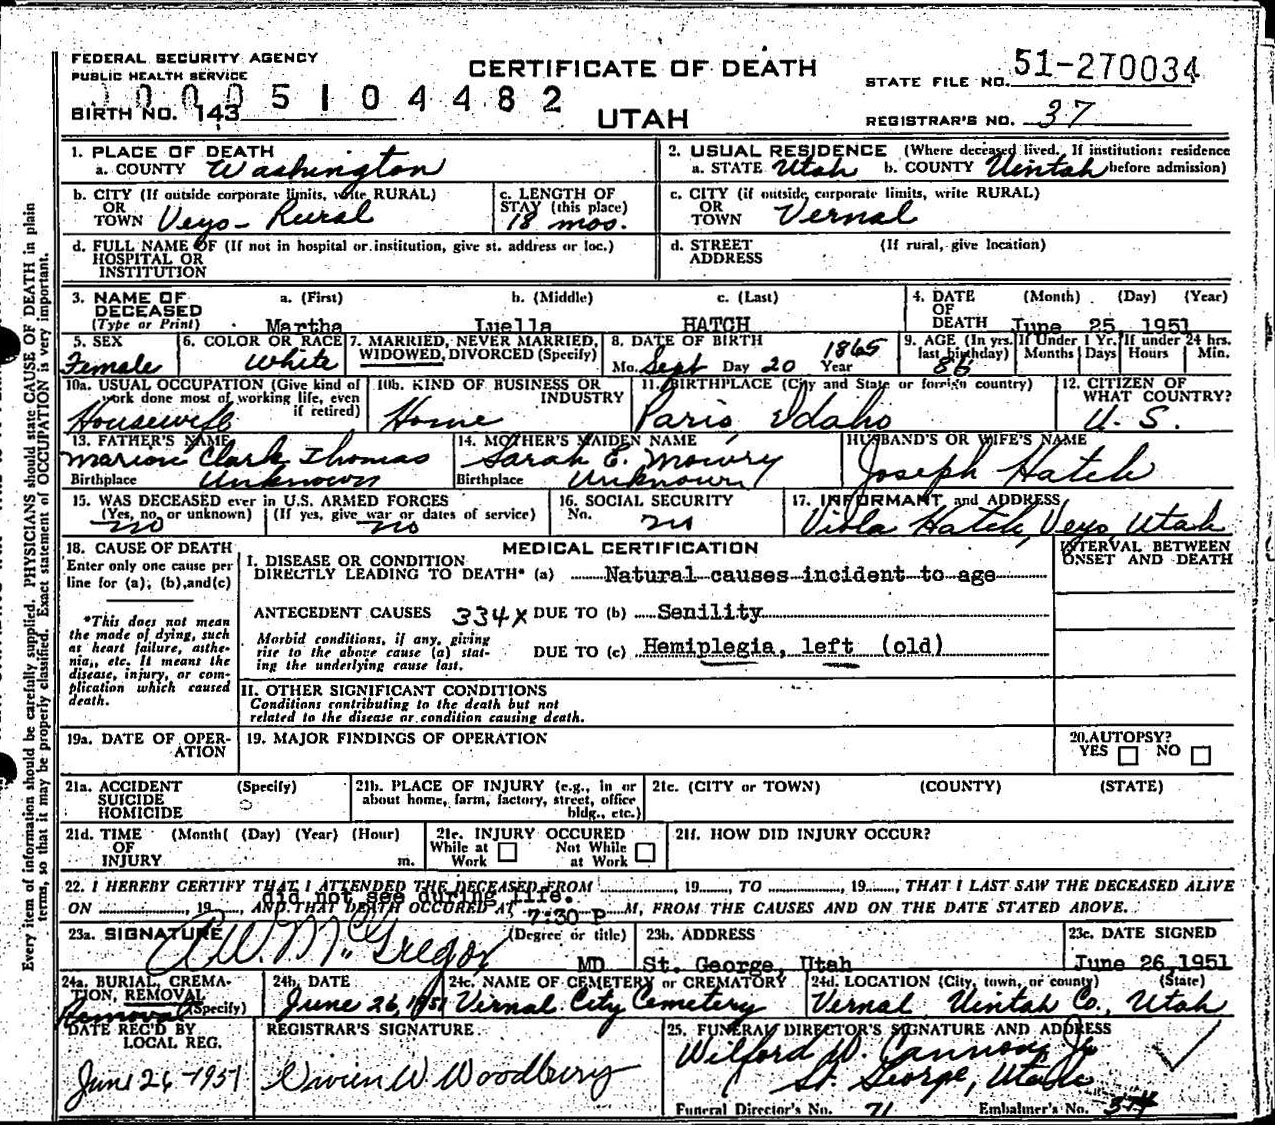 FEDERAL SECURITY AGENCY
PUBLIC HEALTH SERVICE
CERTIFICATE OF DEATH
STATE FILE NO. 51-270034
0005104482
BIRTH NO. 143
UTAH
REGISTRAR'S NO. 37
1. PLACE OF DEATH
a. COUNTY Washington
2. USUAL RESIDENCE (Where deceased lived. If institution: residence before admission)
a. STATE Utah b. COUNTY Uintah
b. CITY (If outside corporate limits, write RURAL)
OR TOWN Veyo - Rural
c. LENGTH OF STAY (this place) 18 mos.
c. CITY (if outside corporate limits, write RURAL)
OR TOWN Vernal
d. FULL NAME OF (If not in hospital or institution, give st. address or loc.)
HOSPITAL OR
INSTITUTION
d. STREET ADDRESS (If rural, give location)
3. NAME OF DECEASED (Type or Print)
a. (First) b. (Middle) c. (Last)
Martha Luella HATCH
4. DATE OF DEATH (Month) (Day) (Year)
June 25, 1951
5. SEX
Female
6. COLOR OR RACE
White
7. MARRIED, NEVER MARRIED, WIDOWED, DIVORCED (Specify)
8. DATE OF BIRTH
Mo. Sept Day 20 Year 1865
9. AGE (In yrs. last birthday) 86
If Under 1 Yr. Months Days
If under 24 hrs. Hours Min.
10a. USUAL OCCUPATION (Give kind of work done most of working life, even if retired)
Housewife
10b. KIND OF BUSINESS OR INDUSTRY
Home
11. BIRTHPLACE (City and State or foreign country)
Paris Idaho
12. CITIZEN OF WHAT COUNTRY?
U. S.
13. FATHER'S NAME
Marion Clark Thomas
Birthplace Unknown
14. MOTHER'S MAIDEN NAME
Sarah E. Mowry
Birthplace Unknown
HUSBAND'S OR WIFE'S NAME
Joseph Hatch
15. WAS DECEASED ever in U.S. ARMED FORCES
(Yes, no, or unknown) (If yes, give war or dates of service)
no no
16. SOCIAL SECURITY
No. no
17. INFORMANT and ADDRESS
Viola Hatch, Veyo, Utah
18. CAUSE OF DEATH
Enter only one cause per line for (a), (b), and (c)
*This does not mean the mode of dying, such at heart failure, asthenia, etc. It means the disease, injury, or complication which caused death.
MEDICAL CERTIFICATION
INTERVAL BETWEEN ONSET AND DEATH
I. DISEASE OR CONDITION
DIRECTLY LEADING TO DEATH* (a) Natural causes incident to age
ANTECEDENT CAUSES 334X DUE TO (b) Senility
Morbid conditions, if any, giving rise to the above cause (a) stating the underlying cause last.
DUE TO (c) Hemiplegia, left (old)
II. OTHER SIGNIFICANT CONDITIONS
Conditions contributing to the death but not
related to the disease or condition causing death.
19a. DATE OF OPERATION
19. MAJOR FINDINGS OF OPERATION
20. AUTOPSY?
YES NO
21a. ACCIDENT (Specify)
SUICIDE
HOMICIDE
21b. PLACE OF INJURY (e.g., in or about home, farm, factory, street, office bldg., etc.)
21c. (CITY or TOWN) (COUNTY) (STATE)
21d. TIME (Month( (Day) (Year) (Hour)
OF
INJURY m.
21e. INJURY OCCURED
While at Work Not While at Work
21f. HOW DID INJURY OCCUR?
22. I HEREBY CERTIFY THAT I ATTENDED THE DECEASED FROM , 19 , TO , 19 , THAT I LAST SAW THE DECEASED ALIVE
did not see during life.
ON , 19 , AND THAT DEATH OCCURED AT 7:30 P M, FROM THE CAUSES AND ON THE DATE STATED ABOVE.
23a. SIGNATURE (Degree or title)
A.W. McGregor MD
23b. ADDRESS
St. George, Utah
23c. DATE SIGNED
June 26, 1951
24a. BURIAL, CREMATION, REMOVAL (Specify)
Removal
24b. DATE
June 26, 1951
24c. NAME OF CEMETERY or CREMATORY
Vernal City Cemetery
24d. LOCATION (City, town, or county) (State)
Vernal Uintah Co., Utah
DATE REC'D BY LOCAL REG.
June 26 - 1951
REGISTRAR'S SIGNATURE
W Woodbury
25. FUNERAL DIRECTOR'S SIGNATURE AND ADDRESS
Wilford W. Cannon Jr
St. George, Utah
Funeral Director's No. 71 Embalmer's No.
Every item of information should be carefully supplied. PHYSICIANS should state CAUSE OF DEATH in plain
terms, so that it may be properly classified. Exact statement of OCCUPATION is very important.